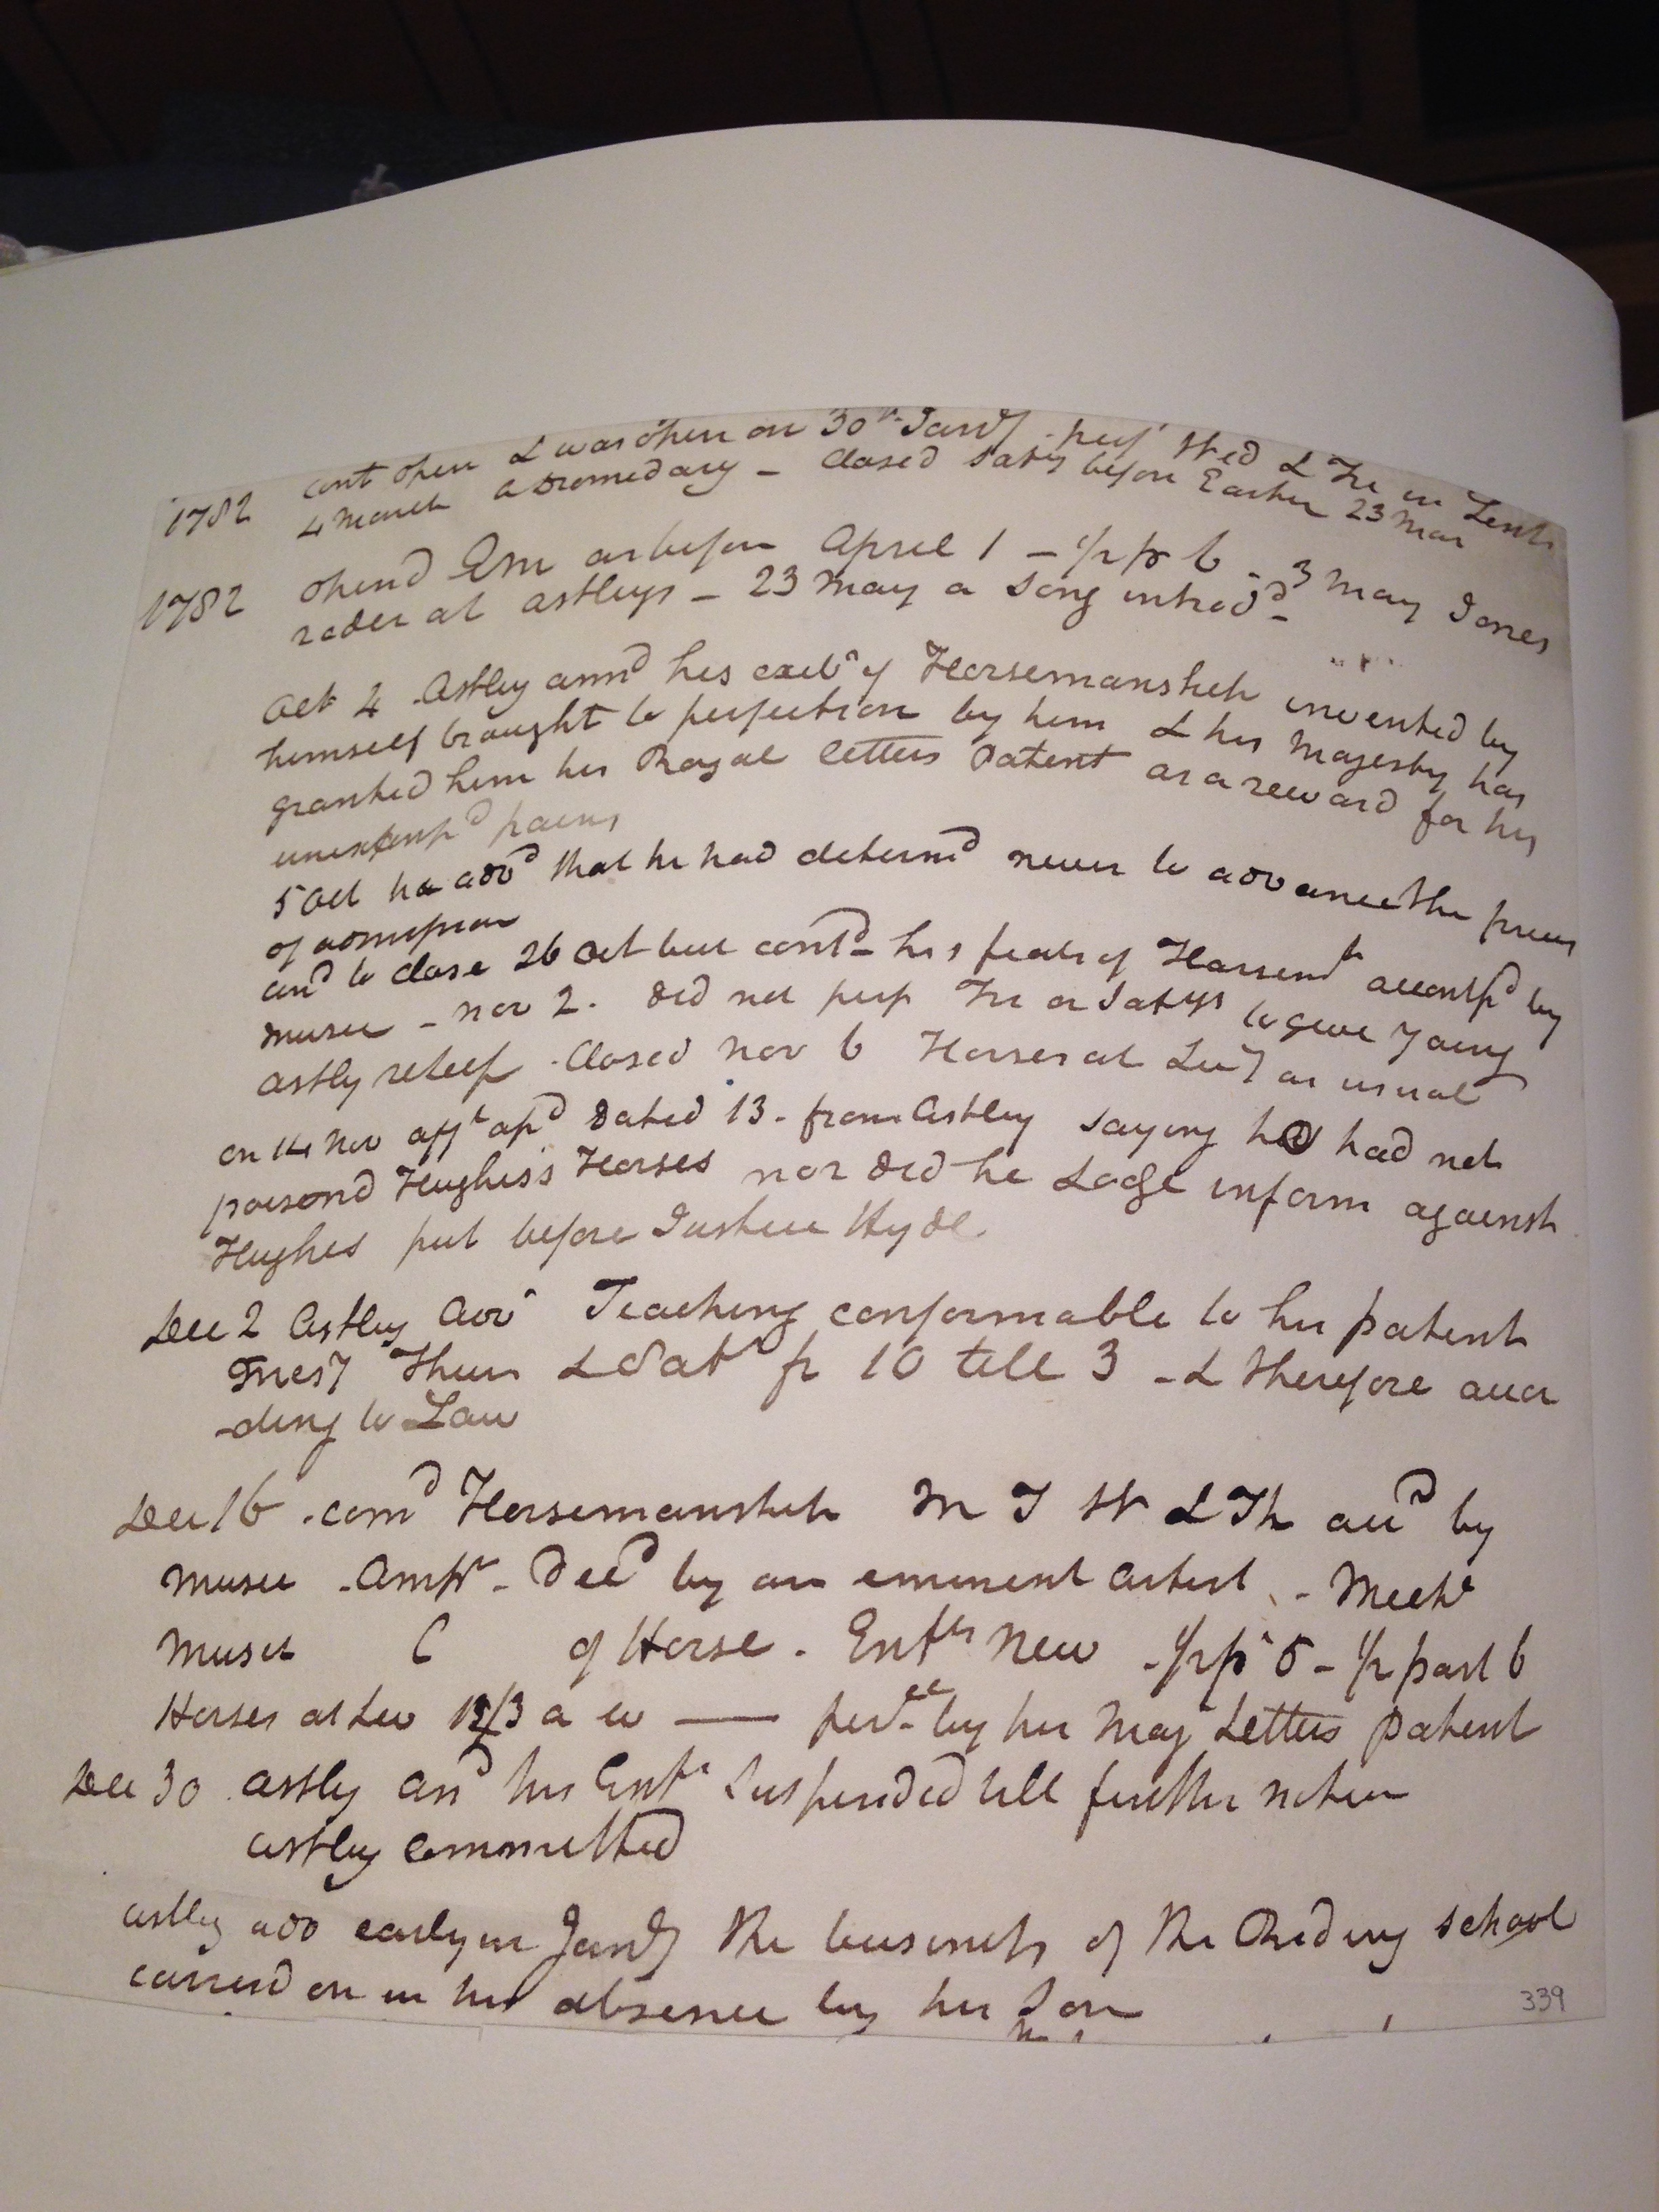 1782 cont open & was open on 30th Jany - perf Wed & Fri in Lent
4 March a Dromedary - Closed Saty before Easter 23 Mar
1782 opend Em as before April 1 - 1/2 p 6 - 3 May Jones
rides at Astleys - 23 May a Song introdd -
Oct 4 Astley annd his exibn of Horsemanship invented by
himself brought to perfection by him & his Majesty has
granted him his Royal letters Patent as a reward for his
pains
5 Oct he advd that he had determd never to advance the prices
of admission
annd to close 26 Oct but contd his feats of Horsemh accompd by
music - Nov 2. Did not perf Fri or Satys to give Young
Astly relief - Closed Nov 6 Horses at Liv7 as usual
on 14 Nov afft apd Dated 13 - from Astley saying he had not
poisond Hughes's Horses nor did he Lodge inform against
Hughes put before Justice Hyde
Dec 2 Astley adv Teaching conformable to his patent
Tues7 Thurs & Sat fr 10 till 3 - & therefore accor
-ding to Law
Dec 16 - comd Horsemanship M T W & Th accd by
Music - Ampr - Decd by an eminent artist - Meche
Music C of Horse - Entts New - 1/2 p 5 - 1/2 past 6
Horses at Liv 13/3 a w — by his Maj Letters patent
Dec 30 Astly and his Entt Suspended till further notice
Astley committed
Astley adv early in Jany the business of the Riding school
carried on in his absence by his Son
339